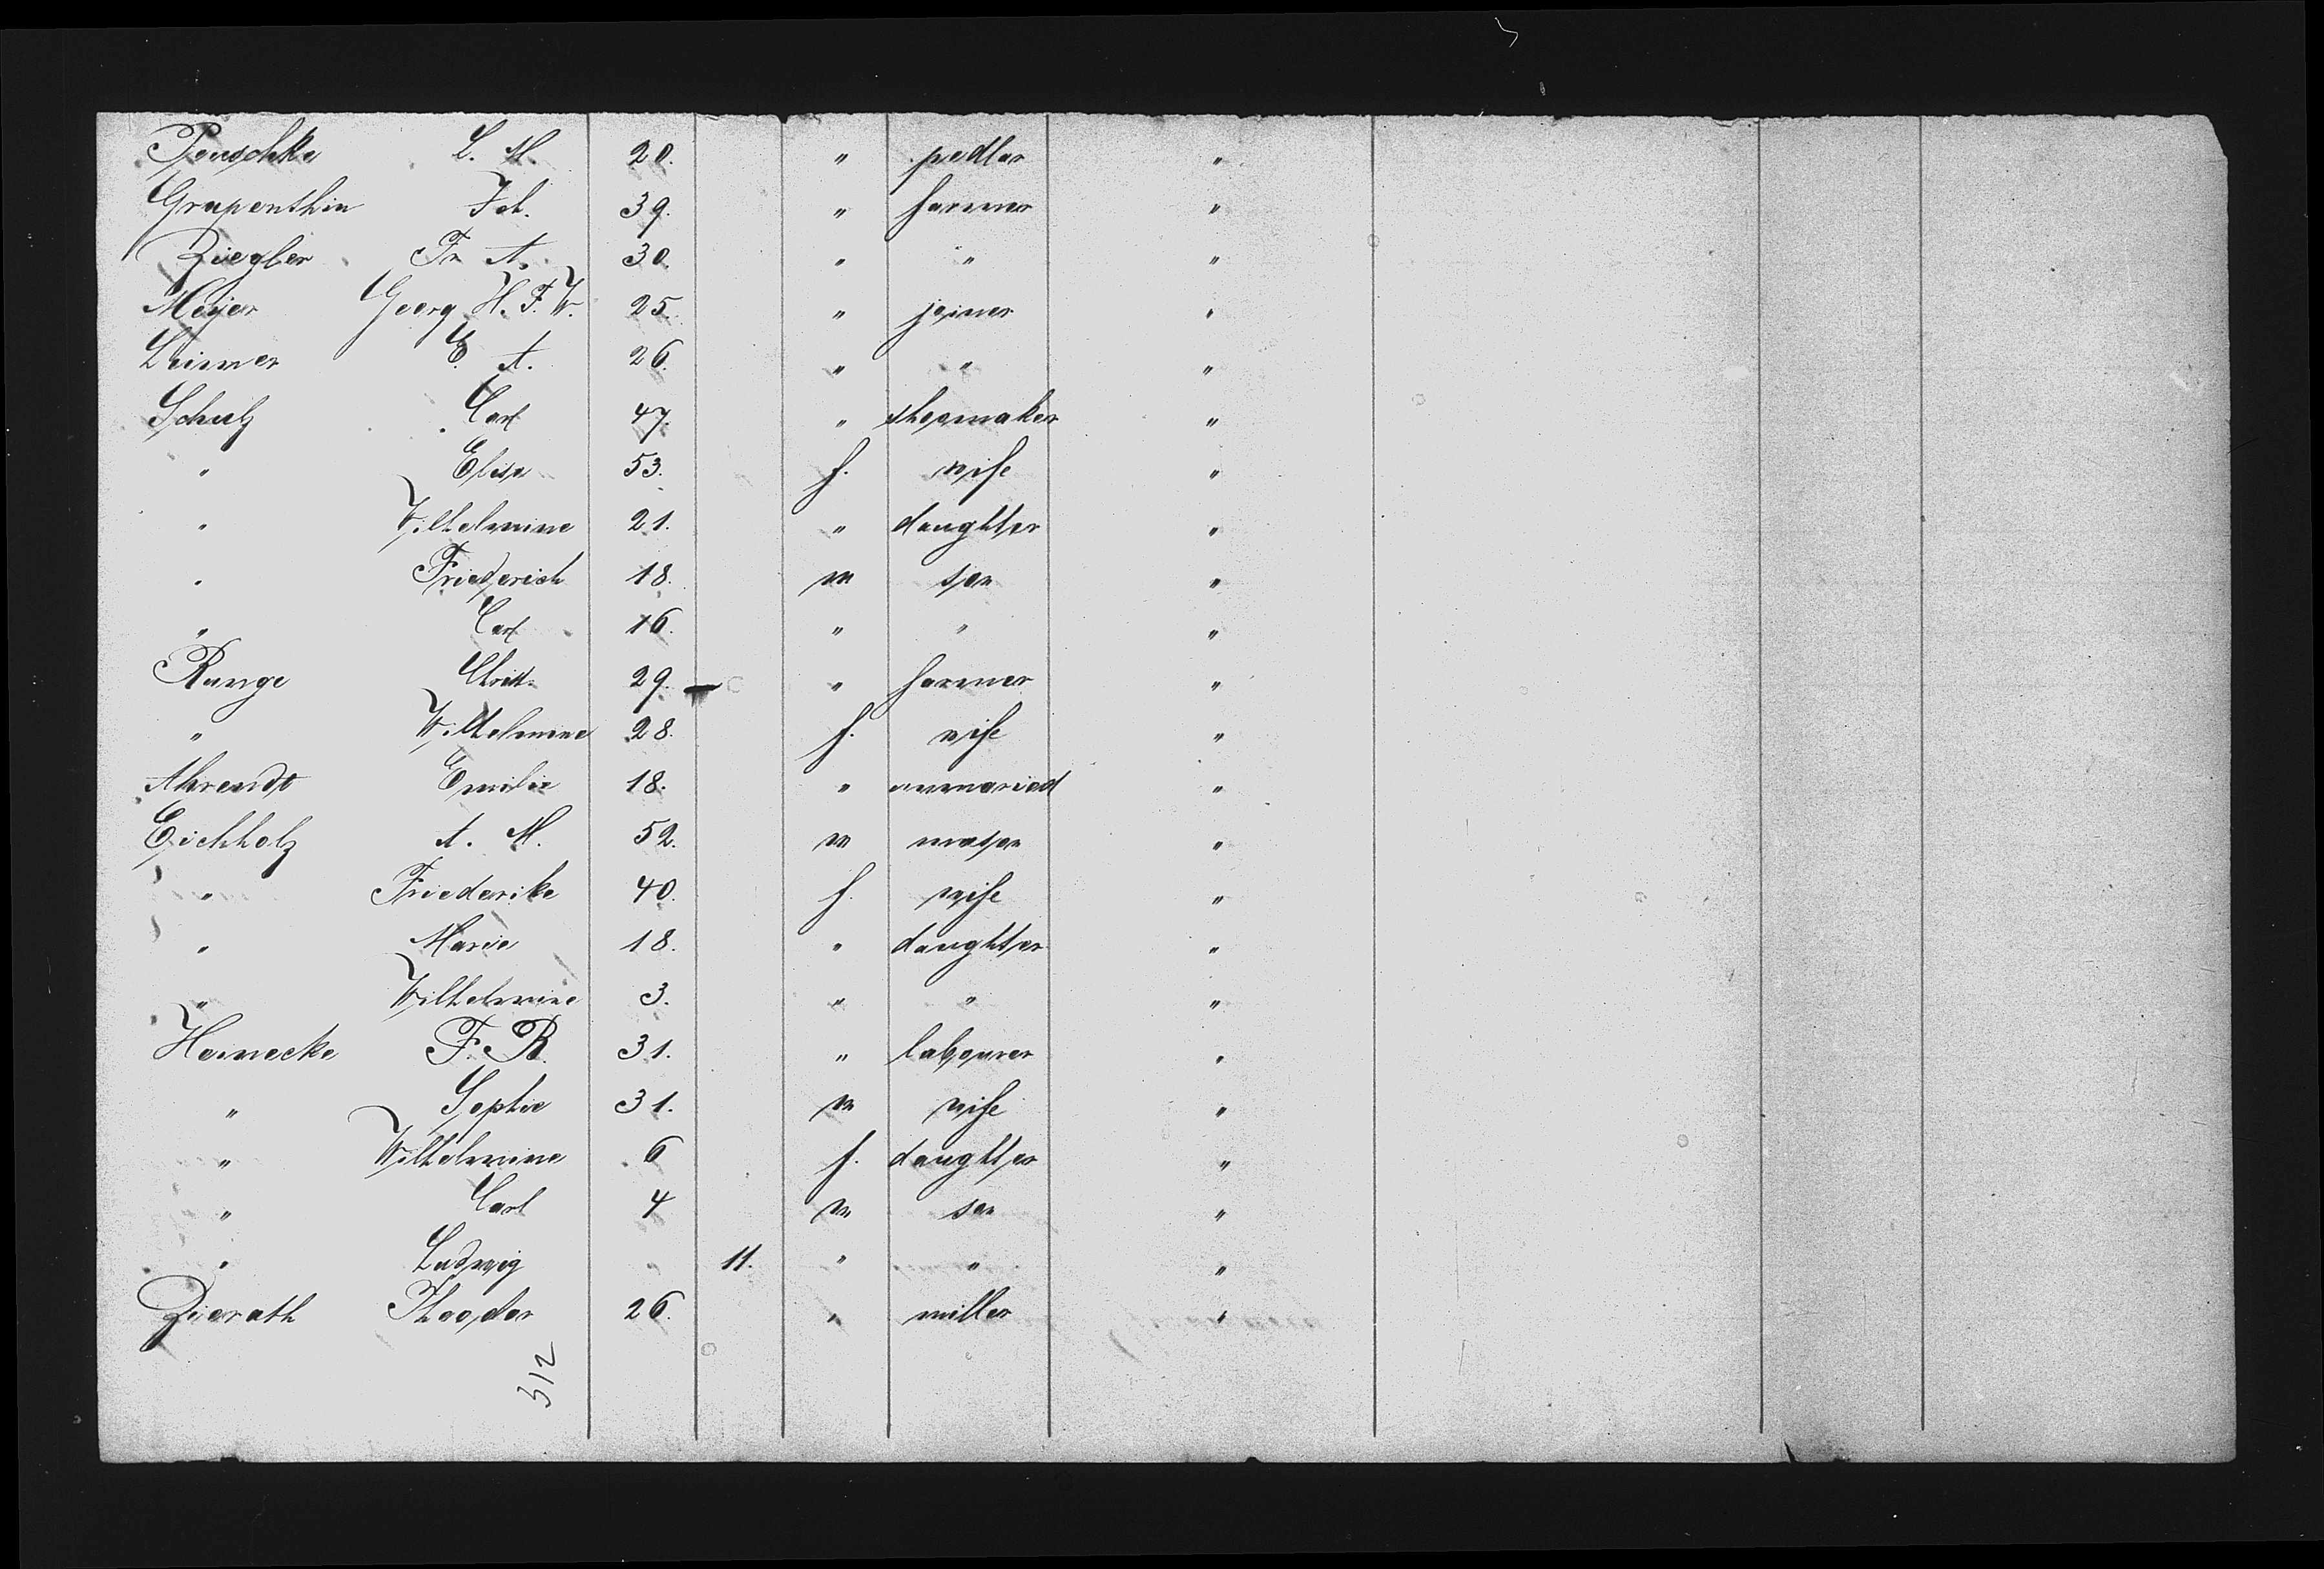 Penschke L. M. 20. " pedlar "
Grapenthin Joh. 39. " farmer "
Ziegler Fr. A. 30. " " "
Meyer Georg H. F. W. 25. " joiner "
Leimer E. A. 26. " " "
Schulz Carl 47. " shoemaker "
" Elise 53. f. wife "
" Wilhelmine 21. " daughter "
" Friederich 18. m son "
" Carl 16. " " "
Runge Christ. 29. " farmer "
" Wilhelmine 28. f. wife "
Ahrendt Emilie 18. " unmaried "
Eichholz A. M. 52. m mason "
" Friederike 40. f. wife "
" Marie 18. " daughter "
" Wilhelmine 3. " " "
Heinecke F. R. 31. " labourer "
" Sophie 31. m wife "
" Wilhelmine 6 f. daughter "
" Carl 4 m son "
" Ludwig " 11. " " "
Zierath Theodor 26. " miller "
312